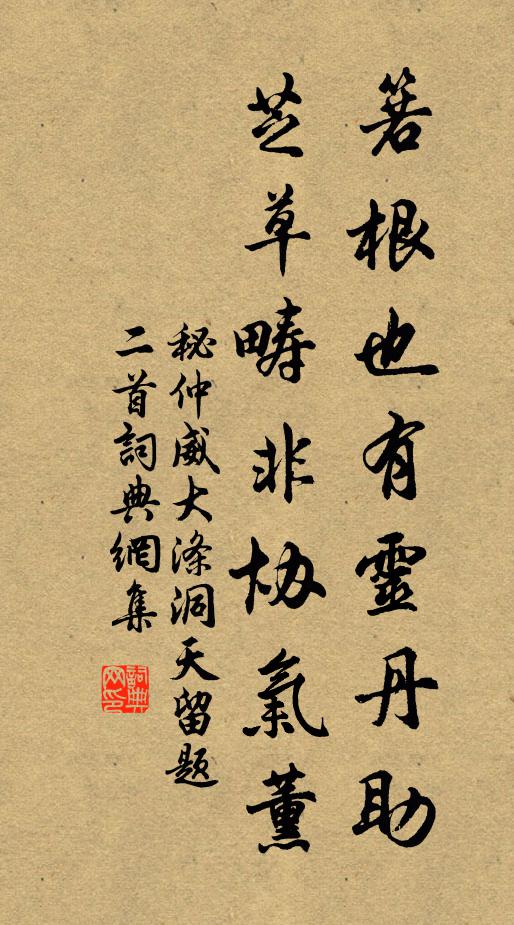 箬根也有靈丹助
芝草疇非协氣薰
秘仲威大涤洞天留题
二首詞典網集
詞典
网印